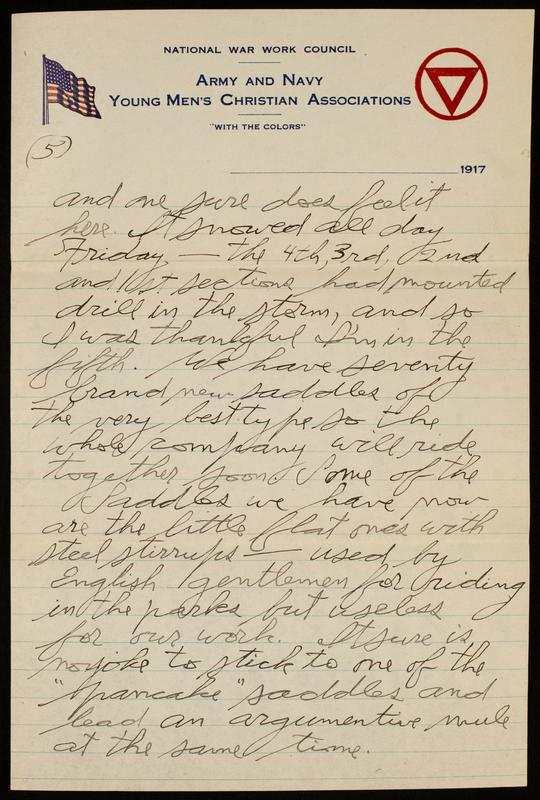 NATIONAL WAR WORK COUNCIL
ARMY AND NAVY
YOUNG MEN'S CHRISTIAN ASSOCIATIONS
"WITH THE COLORS"
(5)
1917
and one sure does feel it
here. It snowed all day
Friday, — the 4th, 3rd, 2nd
and 1st sections had mounted
drill in the storm, and so
I was thankful I'm in the
fifth. We have seventy
brand new saddles of
the very best type so the
whole company will ride
together soon. Some of the
saddles we have now
are the little flat ones with
steel stirrups — used by
English gentlemen for riding
in the parks but useless
for our work. It sure is
no joke to stick to one of the
"pancake" saddles and
lead an argumentive mule
at the same time.